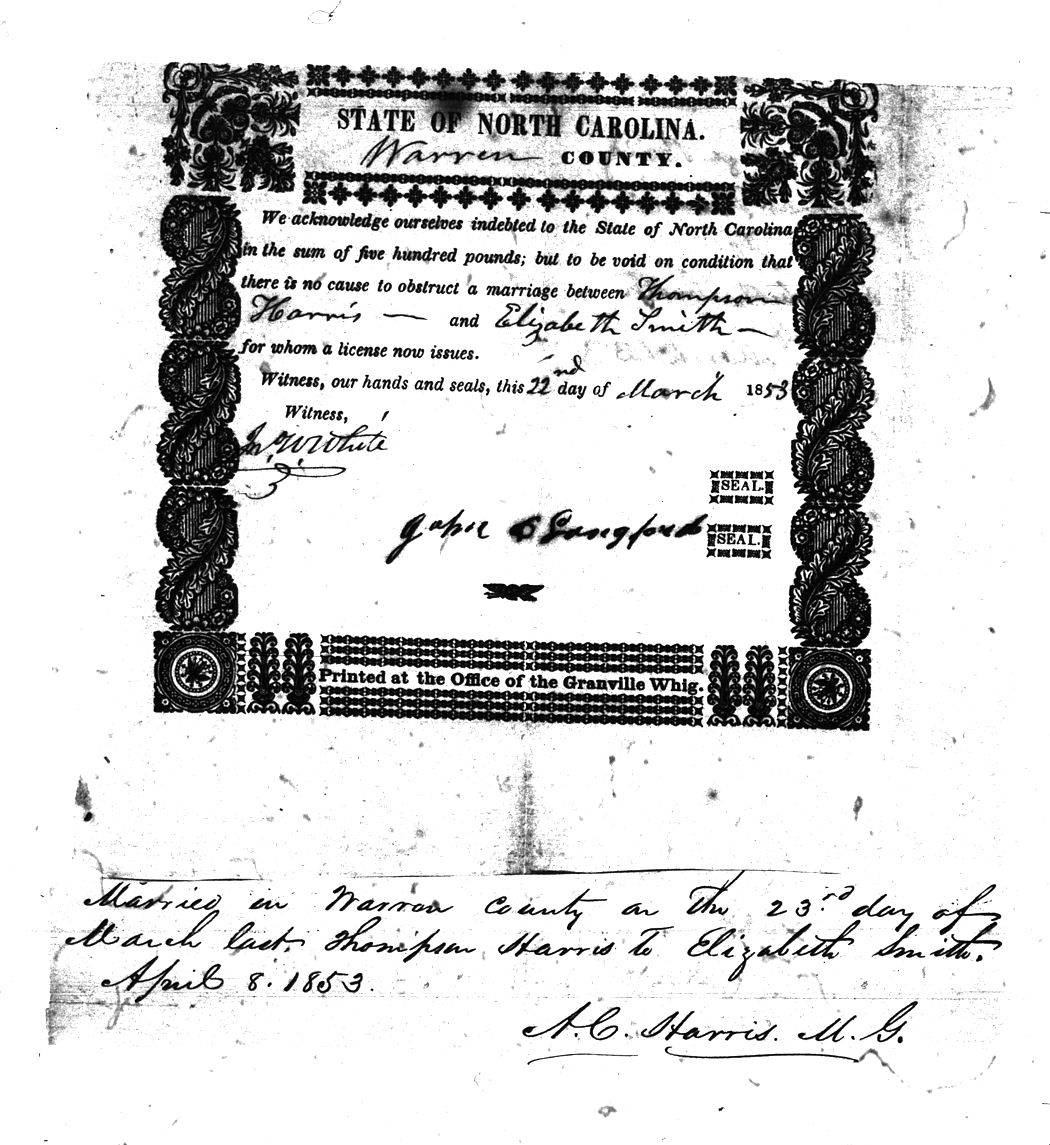 STATE OF NORTH CAROLINA.
Warren COUNTY.
We acknowledge ourselves indebted to the State of North Carolina
in the sum of five hundred pounds; but to be void on condition that
there is no cause to obstruct a marriage between Thompson
Harris — and Elizabeth Smith —
for whom a license now issues.
Witness, our hands and seals, this 22nd day of March 1853
Witness,
Jn. W. White
SEAL.
John Langford SEAL.
Printed at the Office of the Granville Whig.
Married in Warren County on the 23rd day of
March last. Thompson Harris to Elizabeth Smith.
April 8. 1853.
A. C. Harris. M. G.